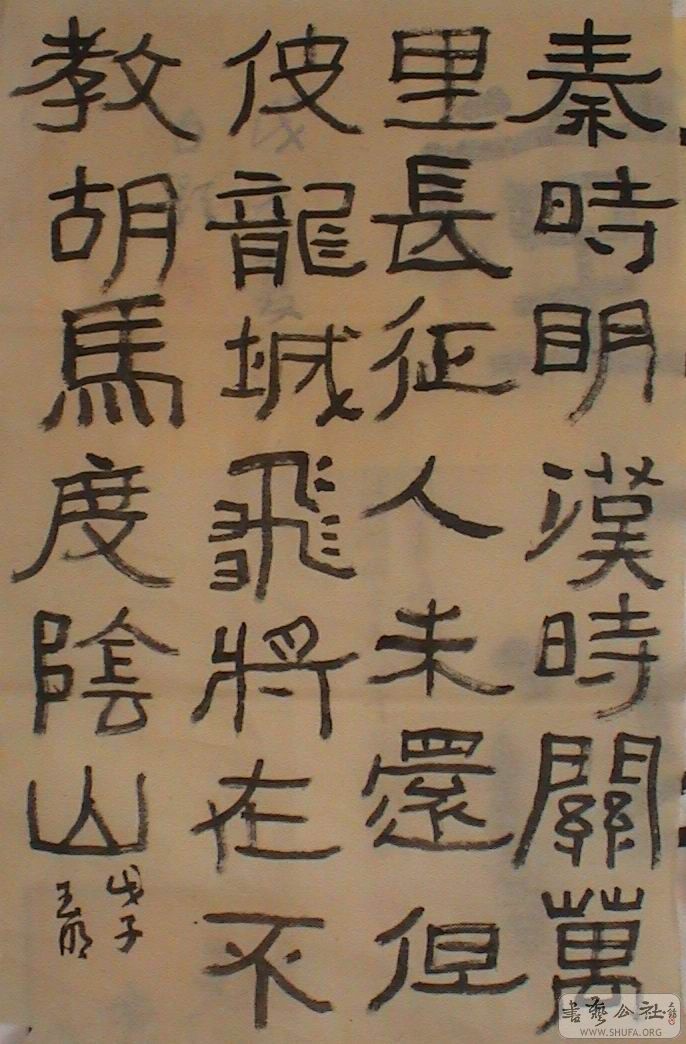 秦時明漢時關萬
里長征人未還但
使龍城飛將在不
教胡馬度陰山
戊子
王
書藝公社
WWW.SHUFA.ORG